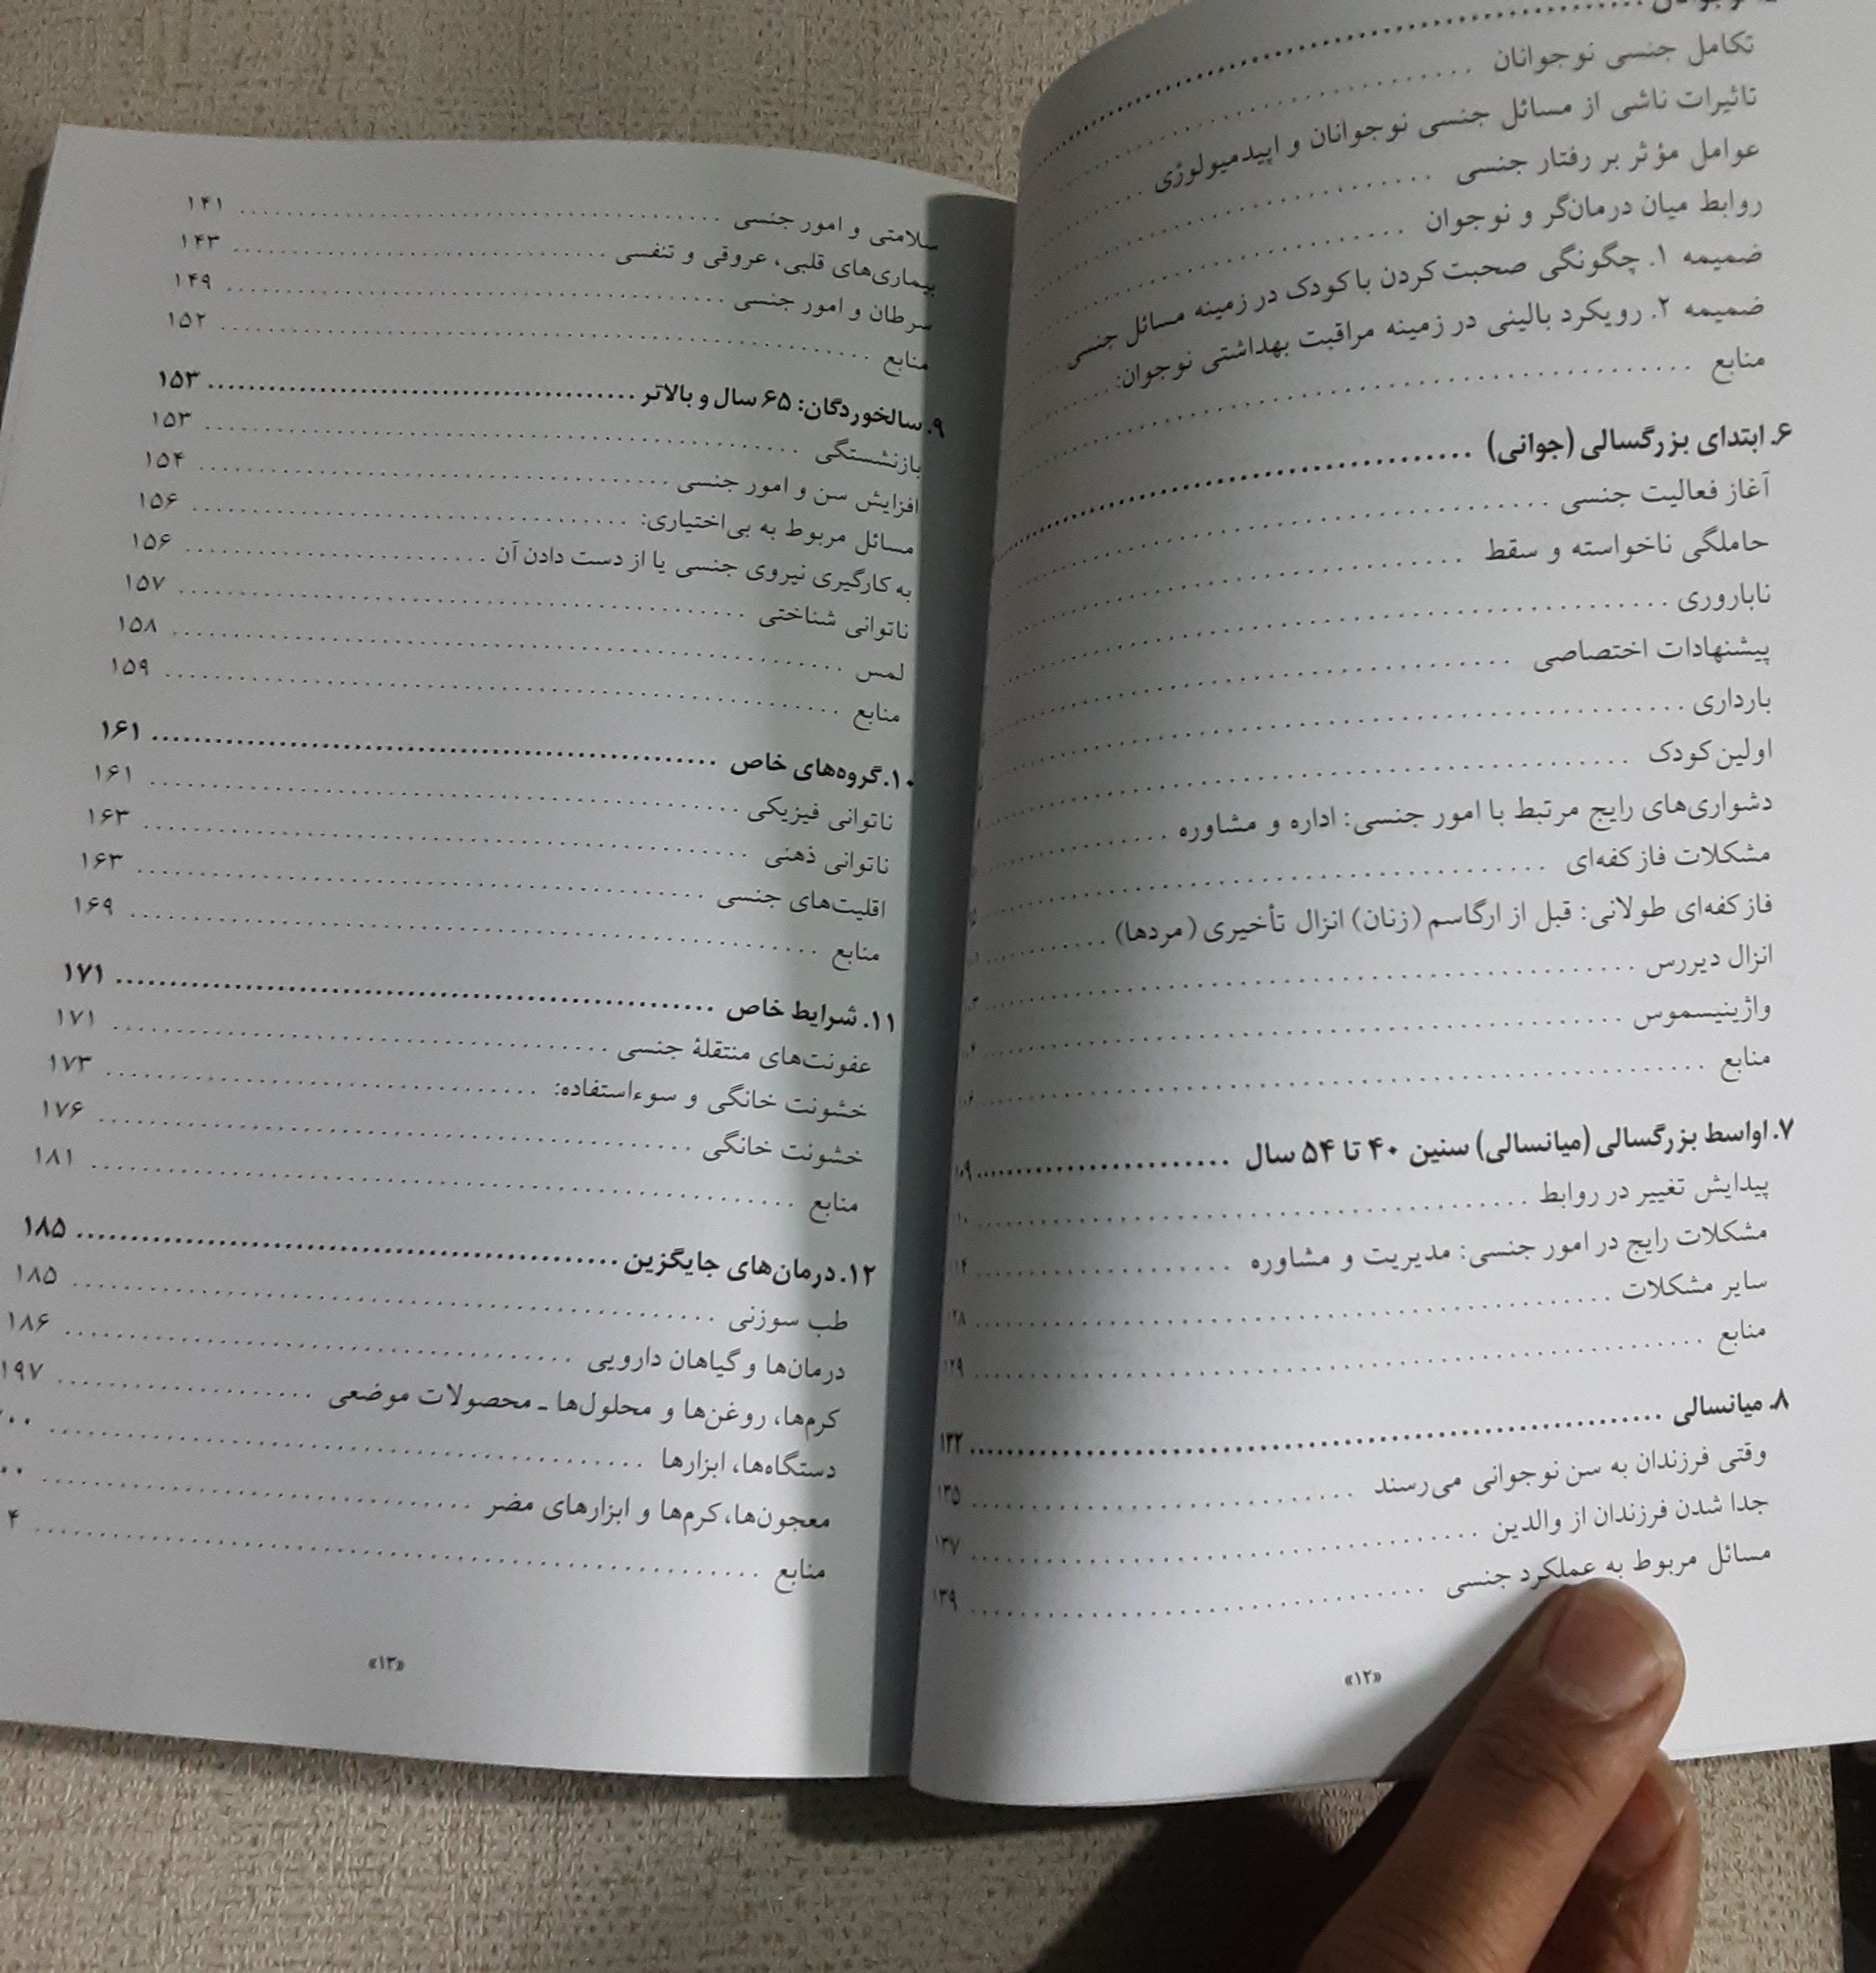 تکامل جنسی نوجوانان
تاثیرات ناشی از مسائل جنسی نوجوانان و اپیدمیولوژی
عوامل مؤثر بر رفتار جنسی
روابط میان درمان‌گر و نوجوان
ضمیمه ۱. چگونگی صحبت کردن با کودک در زمینه مسائل جنسی
ضمیمه ۲. رویکرد بالینی در زمینه مراقبت بهداشتی نوجوان:
منابع
۶. ابتدای بزرگسالی (جوانی)
آغاز فعالیت جنسی
حاملگی ناخواسته و سقط
ناباروری
پیشنهادات اختصاصی
بارداری
اولین کودک
دشواری‌های رایج مرتبط با امور جنسی: اداره و مشاوره
مشکلات فاز کفه‌ای
فاز کفه‌ای طولانی: قبل از ارگاسم (زنان) انزال تأخیری (مردها)
انزال دیررس
واژینیسموس
منابع
۷. اواسط بزرگسالی (میانسالی) سنین ۴۰ تا ۵۴ سال ۱۰۹
پیدایش تغییر در روابط
مشکلات رایج در امور جنسی: مدیریت و مشاوره
سایر مشکلات ۱۲۸
منابع ۱۲۹
۸. میانسالی ۱۳۳
وقتی فرزندان به سن نوجوانی می‌رسند ۱۳۵
جدا شدن فرزندان از والدین ۱۳۷
مسائل مربوط به عملکرد جنسی ۱۳۹
«۱۲»
سلامتی و امور جنسی ۱۴۱
بیماری‌های قلبی، عروقی و تنفسی ۱۴۳
سرطان و امور جنسی ۱۴۹
منابع ۱۵۲
۹. سالخوردگان: ۶۵ سال و بالاتر ۱۵۳
بازنشستگی ۱۵۳
افزایش سن و امور جنسی ۱۵۴
مسائل مربوط به بی‌اختیاری: ۱۵۶
به کارگیری نیروی جنسی یا از دست دادن آن ۱۵۶
ناتوانی شناختی ۱۵۷
لمس ۱۵۸
منابع ۱۵۹
۱۰. گروه‌های خاص ۱۶۱
ناتوانی فیزیکی ۱۶۱
ناتوانی ذهنی ۱۶۳
اقلیت‌های جنسی ۱۶۳
منابع ۱۶۹
۱۱. شرایط خاص ۱۷۱
عفونت‌های منتقلهٔ جنسی ۱۷۱
خشونت خانگی و سوءاستفاده: ۱۷۳
خشونت خانگی ۱۷۶
منابع ۱۸۱
۱۲. درمان‌های جایگزین ۱۸۵
طب سوزنی ۱۸۵
درمان‌ها و گیاهان دارویی ۱۸۶
کرم‌ها، روغن‌ها و محلول‌ها ـ محصولات موضعی ۱۹۷
دستگاه‌ها، ابزارها
معجون‌ها، کرم‌ها و ابزارهای مضر
منابع
«۱۳»